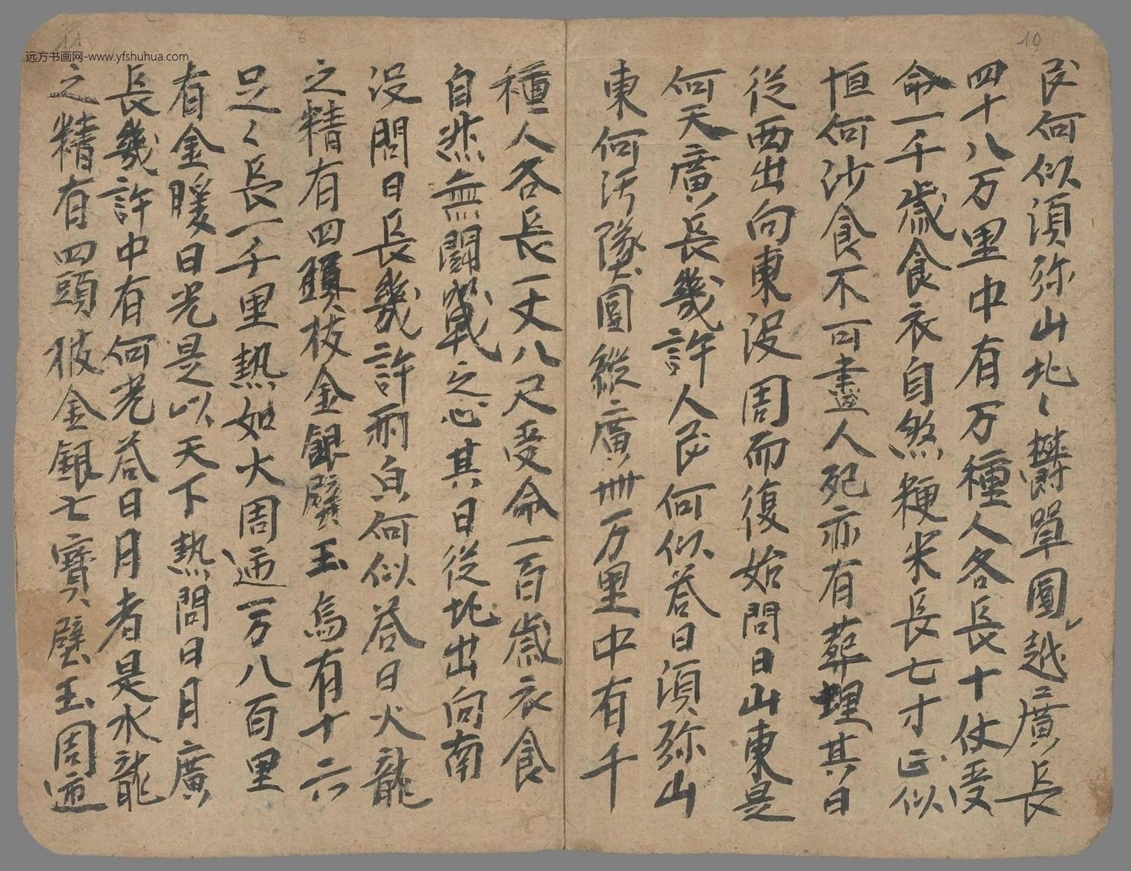 民何似須弥山北〻欝單國越廣長
四十八万里中有万種人各長十仗受
命一千歳食衣自然粳米長七寸正似
恒何沙食不可盡人死亦有葬埋其日
從西出向東没周而復始問曰山東是
何天廣長幾許人民何似答曰須弥山
東何汙墜國縱廣卌万里中有千
種人各長一丈八尺受命一百歳衣食
自然無闘戰之心其日從北出向南
没問日長幾許形皃何似答曰火龍
之精有四頭枝金銀壁玉烏有十六
足〻長一千里熱如火周迊一万八百里
有金暖日光是以天下熱問曰月廣
長幾許中有何光答曰月者是水龍
之精有四頭被金銀七寳壁玉周迊
远方书画网-www.yfshuhua.com
10
11
6